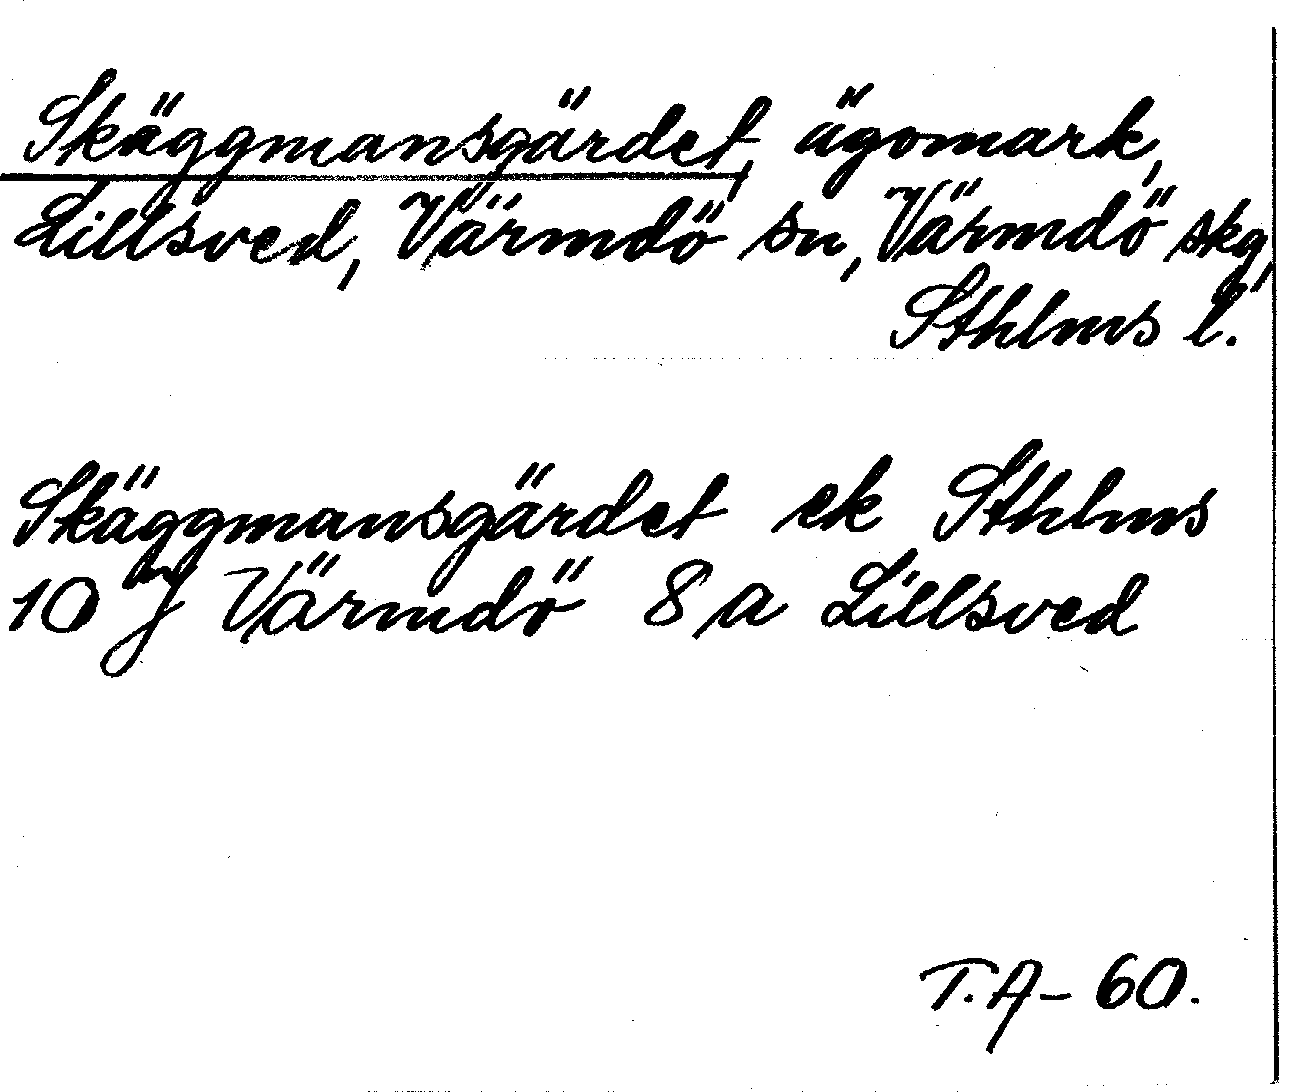 Skäggmansgärdet, ägomark,
Lillsved, Värmdö sn, Värmdö skg,
Sthlms l.
Skäggmansgärdet ek Sthlms
10 J Värmdö 8 a Lillsved
T.A - 60.